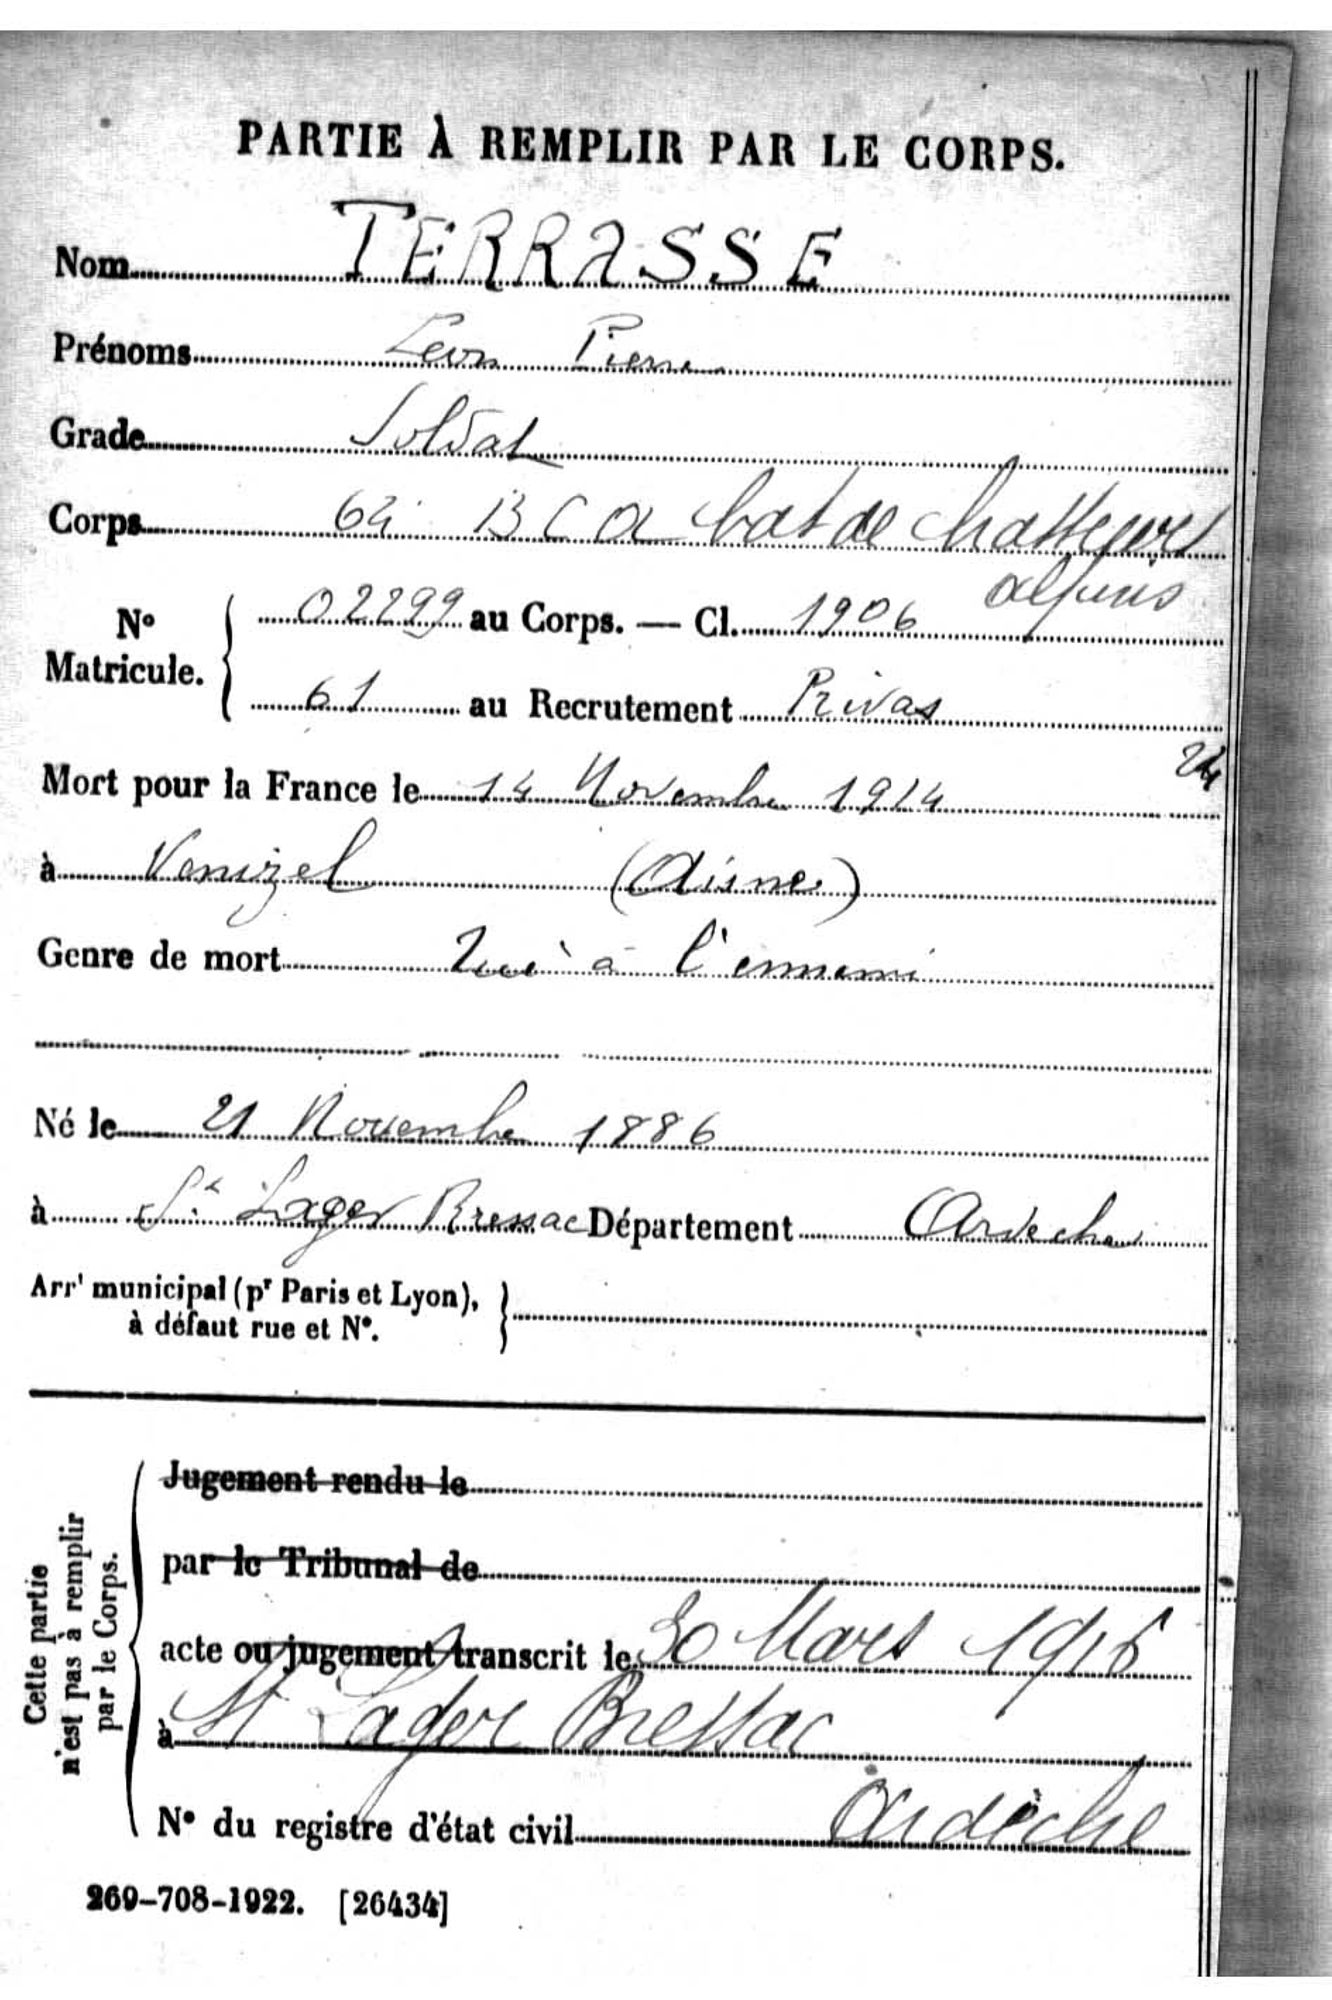 PARTIE À REMPLIR PAR LE CORPS.
Nom TERRASSE
Prénoms Léon Pierre
Grade Soldat
Corps 64è B C A bat de chasseurs
alpins
No
Matricule.
02299 au Corps. — Cl. 1906
61 au Recrutement Privas
24
Mort pour la France le 14 Novembre 1914
à Venizel (Aisne)
Genre de mort Tué à l'ennemi
Né le 21 Novembre 1886
à St Lager Bressac Département Ardèche
Arrt municipal (pr Paris et Lyon),
à défaut rue et No.
Cette partie
n'est pas à remplir
par le Corps.
Jugement rendu le
par le Tribunal de
acte ou jugement transcrit le 30 Mars 1916
à St Lager Bressac
No du registre d'état civil Ardèche
269-708-1922. [26434]